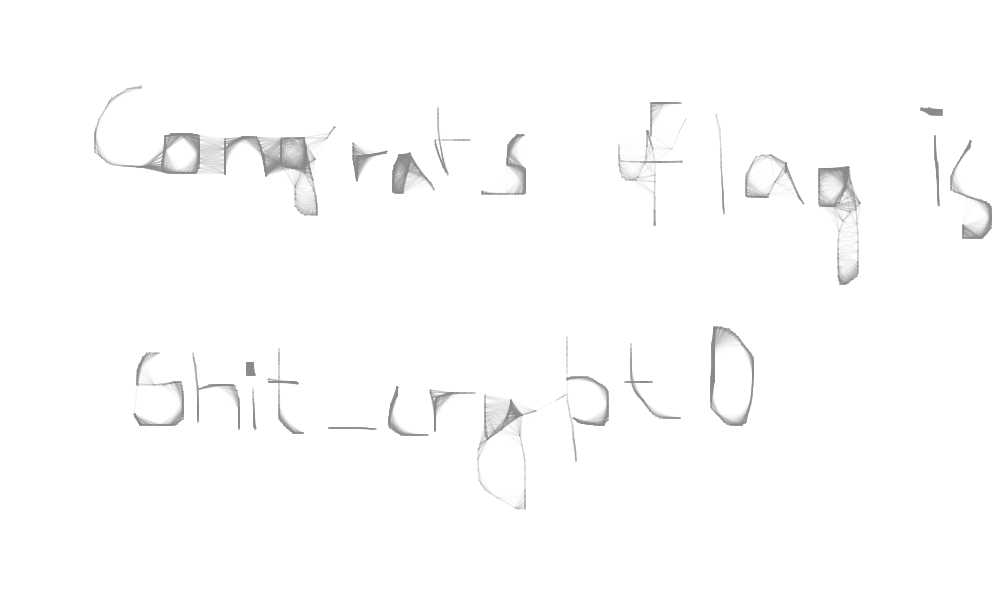 Congrats flag is
Shit_crypt0